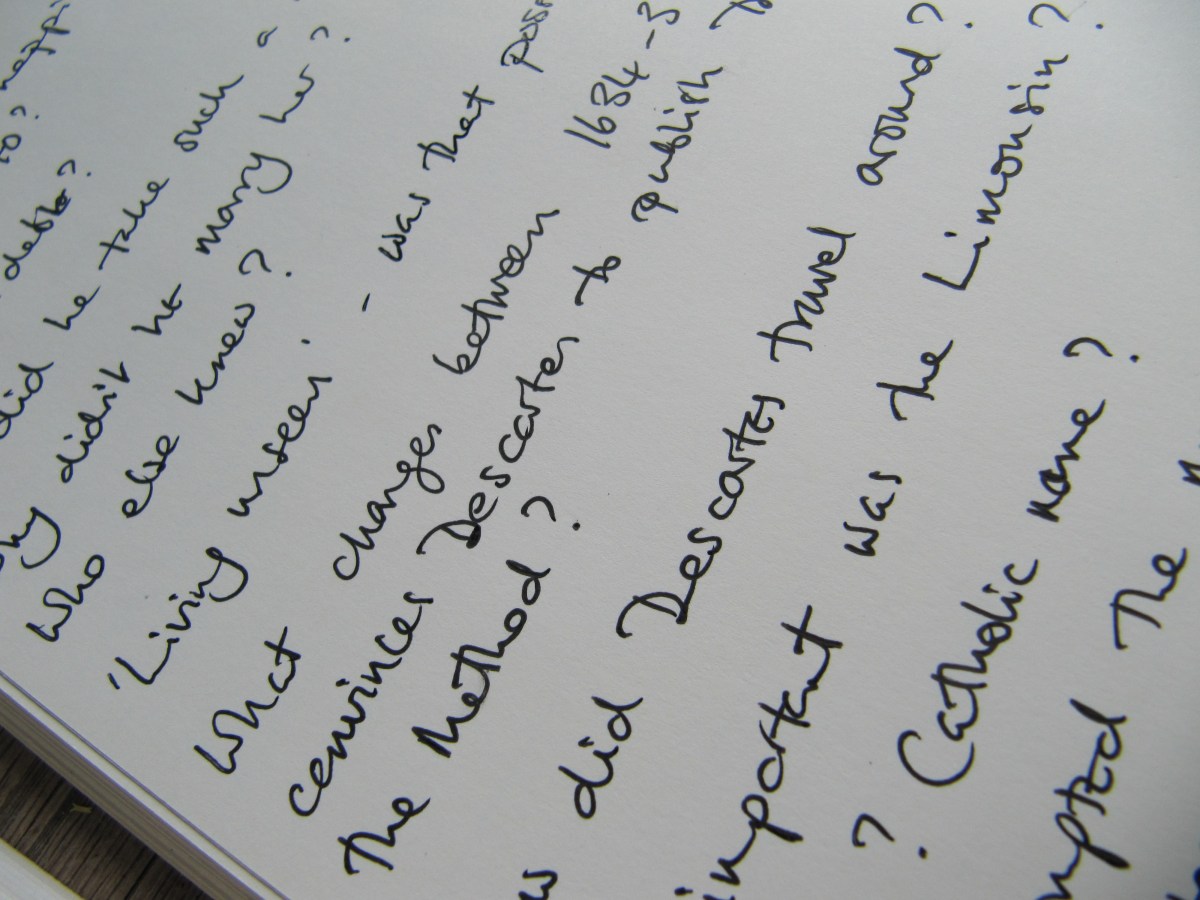 happi
to?
debts?
did he take such a
why didn't he marry her?
who else knew?
'Living unseen' - was that poss
What changes between 1634-3
convinces Descartes to publish
The Method?
did Descartes travel around?
important was the Limousin?
? (Catholic name?
The